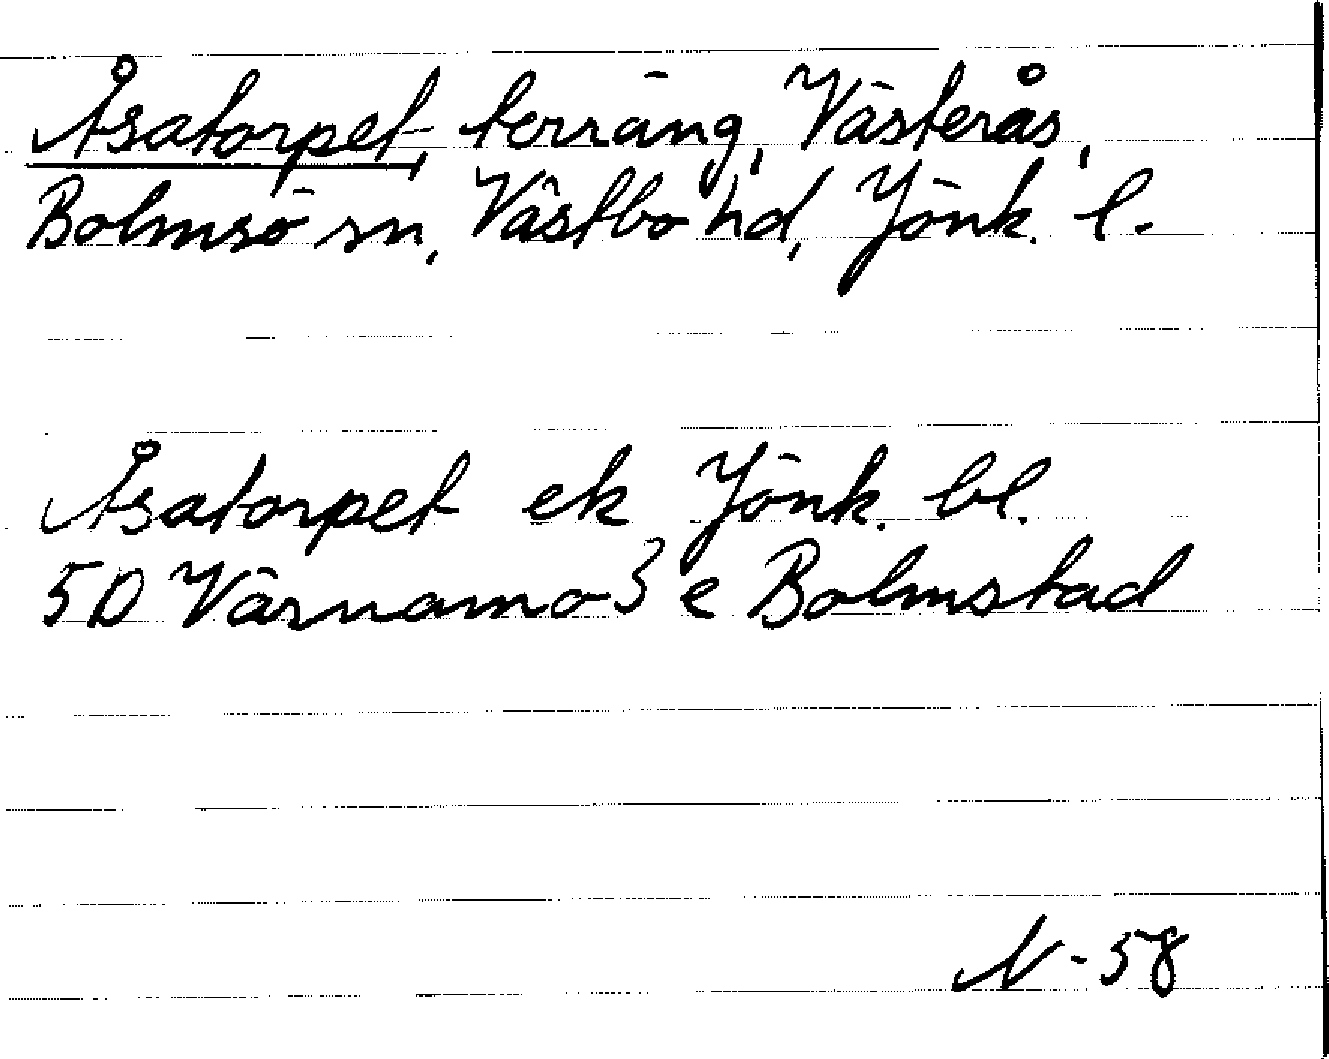 Åsatorpet, terräng, Västerås,
Bolmsö sn, Västbo hd, Jönk. l.
Åsatorpet ek Jönk. bl.
5D Värnamo 3 e Bolmstad
N-58